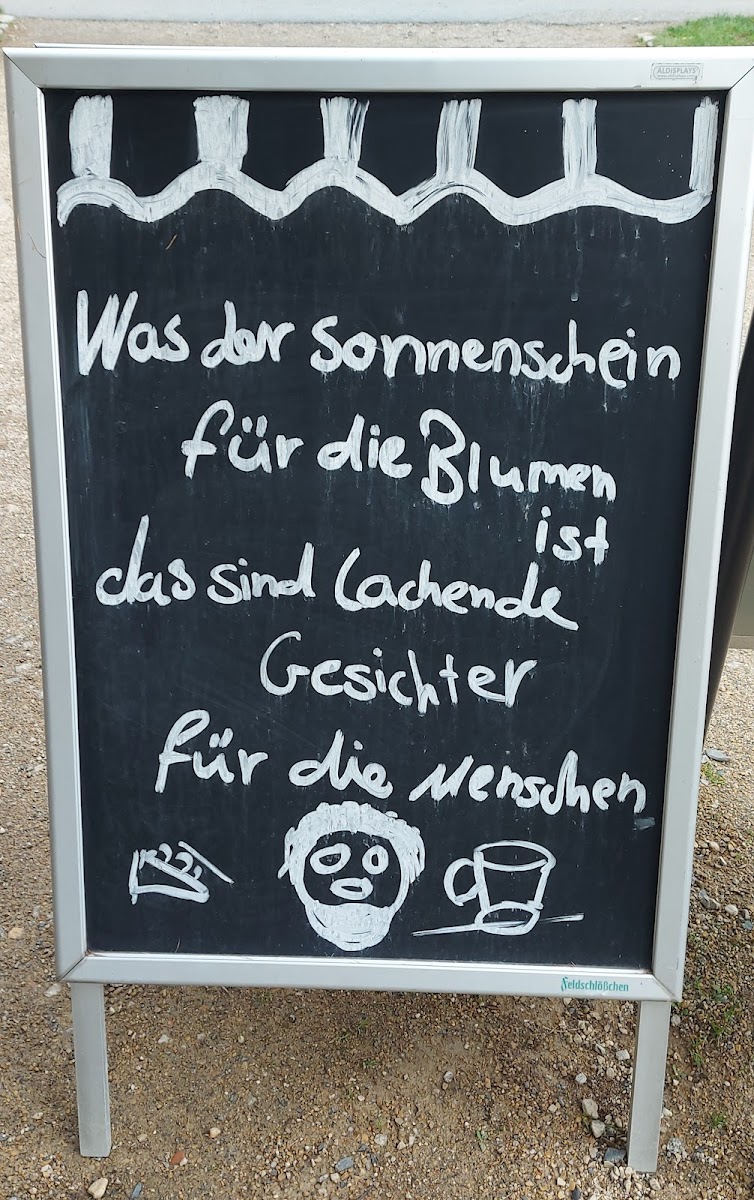 ALDISPLAYS
Was der Sonnenschein
für die Blumen
ist
das sind lachende
Gesichter
für die Menschen
Feldschlößchen